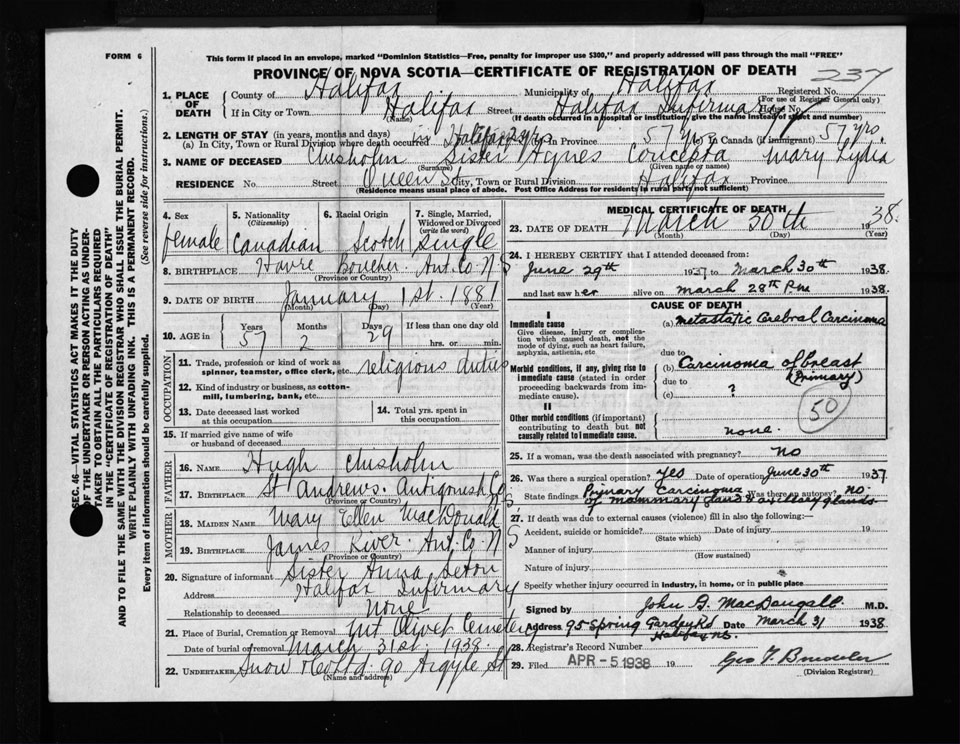 FORM 6
This form if placed in an envelope, marked "Dominion Statistics—Free, penalty for improper use $300," and properly addressed will pass through the mail "FREE"
PROVINCE OF NOVA SCOTIA—CERTIFICATE OF REGISTRATION OF DEATH
237
1. PLACE OF DEATH County of Halifax Municipality of Halifax Registered No.
(For use of Registrar General only)
If in City or Town Halifax Street Halifax Infirmary House No.
(Name) (If death occurred in a hospital or institution, give the name instead of street and number)
2. LENGTH OF STAY (in years, months and days)
(a) In City, Town or Rural Division where death occurred in Halifax yrs. In Province 57 yrs. In Canada (if immigrant) 57 yrs.
3. NAME OF DECEASED Chisholm Sister Agnes Concepta Mary Lydia
(Surname) (Given name or names)
RESIDENCE No. Street Queen St City, Town or Rural Division Halifax Province
(Residence means usual place of abode. Post Office Address for residents in rural parts not sufficient)
4. Sex female
5. Nationality (Citizenship) Canadian
6. Racial Origin Scotch
7. Single, Married, Widowed or Divorced (write the word) Single
8. BIRTHPLACE Havre Boucher Ant. Co. N S
(Province or Country)
9. DATE OF BIRTH January 1st. 1881
(Month) (Day) (Year)
10. AGE in Years 57 Months 2 Days 29 If less than one day old hrs. or min.
OCCUPATION
11. Trade, profession or kind of work as spinner, teamster, office clerk, etc. religious duties
12. Kind of industry or business, as cotton-mill, lumbering, bank, etc.
13. Date deceased last worked at this occupation
14. Total yrs. spent in this occupation
15. If married give name of wife or husband of deceased
FATHER
16. NAME Hugh Chisholm
17. BIRTHPLACE St Andrews. Antigonish Co N S
(Province or Country)
MOTHER
18. MAIDEN NAME Mary Ellen MacDonald
19. BIRTHPLACE James River. Ant. Co. N S
(Province or Country)
20. Signature of informant Sister Anna Seton
Address Halifax Infirmary
Relationship to deceased None
21. Place of Burial, Cremation or Removal Mt Olivet Cemetery
Date of burial or removal March 31st. 1938.
22. UNDERTAKER Snow & Co Ltd 90 Argyle St
(Name and address)
MEDICAL CERTIFICATE OF DEATH
23. DATE OF DEATH March 30th 1938.
(Month) (Day) (Year)
24. I HEREBY CERTIFY that I attended deceased from:
June 29th 1937 to March 30th 1938.
and last saw her alive on March 28th P.M 1938.
CAUSE OF DEATH
I
Immediate cause
Give disease, injury or complication which caused death, not the mode of dying, such as heart failure, asphyxia, asthenia, etc
(a) Metastatic Cerebral Carcinoma
due to
Morbid conditions, if any, giving rise to immediate cause (stated in order proceeding backwards from immediate cause).
(b) Carcinoma of breast
(Primary)
due to
(c) ?
50
II
Other morbid conditions (if important) contributing to death but not causally related to immediate cause.
none.
25. If a woman, was the death associated with pregnancy? No
26. Was there a surgical operation? Yes Date of operation June 30th 1937
State findings Primary Carcinoma Was there an autopsy? no
of mammary gland & axillary glands.
27. If death was due to external causes (violence) fill in also the following:—
Accident, suicide or homicide? Date of injury 19
(State which)
Manner of injury
(How sustained)
Nature of injury
Specify whether injury occurred in industry, in home, or in public place
Signed by John G. MacDougall M.D.
Address 95 Spring Garden Rd Date March 31 1938.
Halifax N.S.
28. Registrar's Record Number
29. Filed APR - 5 1938 19
(Division Registrar)
SEC. 46—VITAL STATISTICS ACT MAKES IT THE DUTY
OF THE UNDERTAKER OR PERSON ACTING AS UNDER-
TAKER TO OBTAIN ALL THE PARTICULARS REQUIRED
IN THE "CERTIFICATE OF REGISTRATION OF DEATH"
AND TO FILE THE SAME WITH THE DIVISION REGISTRAR WHO SHALL ISSUE THE BURIAL PERMIT.
WRITE PLAINLY WITH UNFADING INK. THIS IS A PERMANENT RECORD.
Every item of information should be carefully supplied. (See reverse side for instructions.)